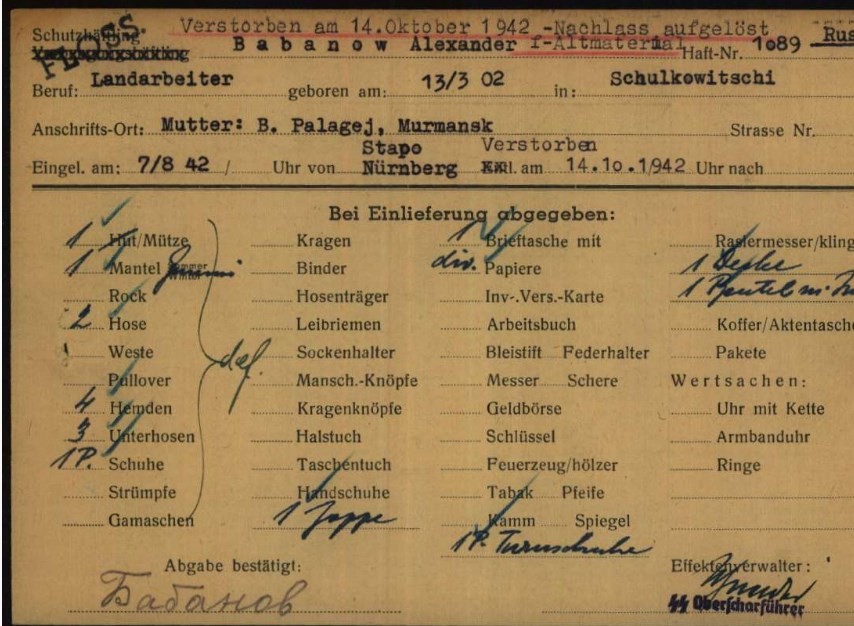 Verstorben am 14.Oktober 1942 -Nachlass aufgelöst
Schutzhäftling FLOSS. Babanow Alexander f-Altmaterial Haft-Nr. 1o89 Rus
Beruf: Landarbeiter geboren am: 13/3 02 in: Schulkowitschi
Anschrifts-Ort: Mutter: B. Palagej, Murmansk Strasse Nr.
Stapo Verstorben
Eingel. am: 7/8 42 / Uhr von Nürnberg am 14.1o.1942 Uhr nach
Bei Einlieferung abgegeben:
1 Hut/Mütze Kragen 1 Brieftasche mit Rasiermesser/kling
1 Mantel Sommer Winter Binder div. Papiere 1 Decke
Rock Hosenträger Inv.-Vers.-Karte 1 Beutel m.
2 Hose Leibriemen Arbeitsbuch Koffer/Aktentasche
Weste def. Sockenhalter Bleistift Federhalter Pakete
Pullover Mansch.-Knöpfe Messer Schere Wertsachen:
4 Hemden Kragenknöpfe Geldbörse Uhr mit Kette
3 Unterhosen Halstuch Schlüssel Armbanduhr
1 P. Schuhe Taschentuch Feuerzeug/hölzer Ringe
Strümpfe Handschuhe Tabak Pfeife
Gamaschen 1 Joppe Kamm Spiegel
1 P. Turnschuhe
Abgabe bestätigt: Effektenverwalter:
Бабанов
SS Oberscharführer